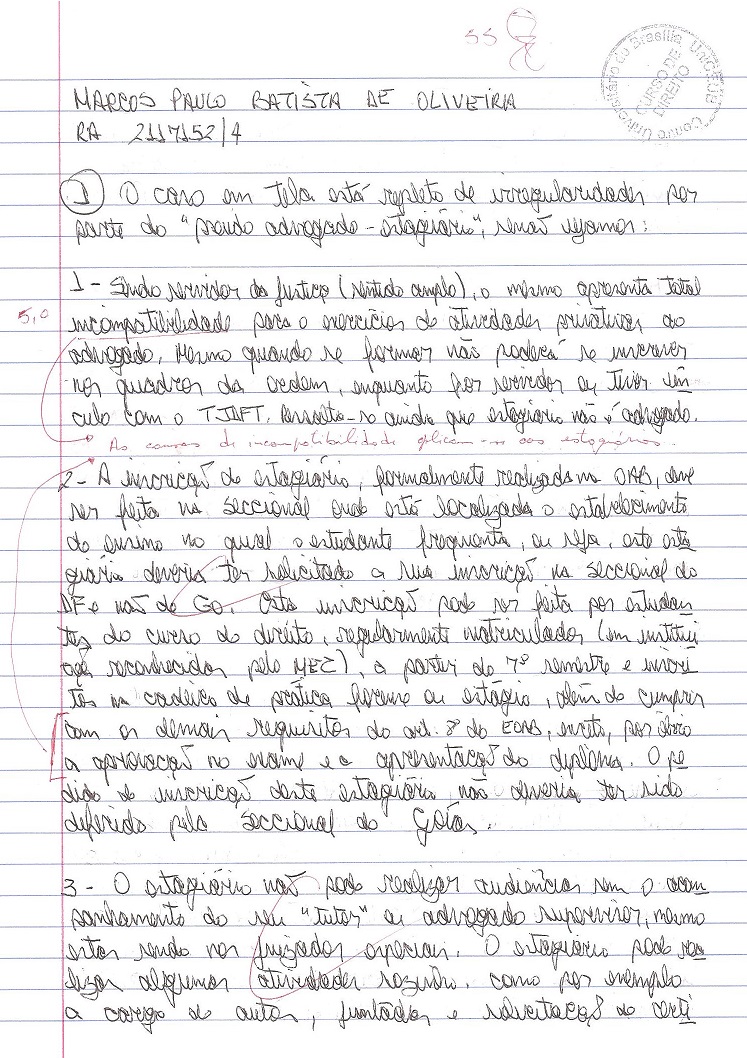 SS
Centro Universitário de Brasília UniCEUB
CURSO DE DIREITO
MARCOS PAULO BATISTA DE OLIVEIRA
RA 2117152/4
1 O caso em tela está repleto de irregularidades por
parte do "pseudo advogado-estagiário", senão vejamos:
1 - Sendo servidor da Justiça (sentido amplo), o mesmo apresenta total
5,0
incompatibilidade para o exercícios de atividades privativas ao
advogado, Mesmo quando se formar não poderá se inscrever
nos quadros da ordem, enquanto for servidor ou tiver vín
culo com o TJDFT. Ressalta-se ainda que estagiário não é advogado.
As causas de incompatibilidade aplicam-se aos estagiários.
2 - A inscrição de estagiário, formalmente realizada na OAB, deve
ser feita na seccional onde está localizado o estabelecimento
de ensino no qual o estudante frequenta, ou seja, este esta
giário deveria ter solicitado a sua inscrição na seccional do
DF e não de GO. Esta inscrição pode ser feita por estudan
tes do curso de direito, regularmente matriculados (em institui
ções reconhecidas pelo MEC), a partir do 7º semestre e inscri
tos na cadeira de prática forense ou estágio, além de cumprir
com os demais requisitos do art. 8º do EOAB, exceto, por óbvio
a aprovação no exame e a apresentação do diploma. O pe
dido de inscrição deste estagiário não deveria ter sido
deferido pela seccional de Goiás.
3 - O estagiário não pode realizar audiências sem o acom
panhamento do seu "tutor" ou advogado supervisor, mesmo
estas sendo nos juizados especiais. O estagiário pode rea
lizar algumas atividades sozinho, como por exemplo
a carga de autos, juntadas e solicitação de certi